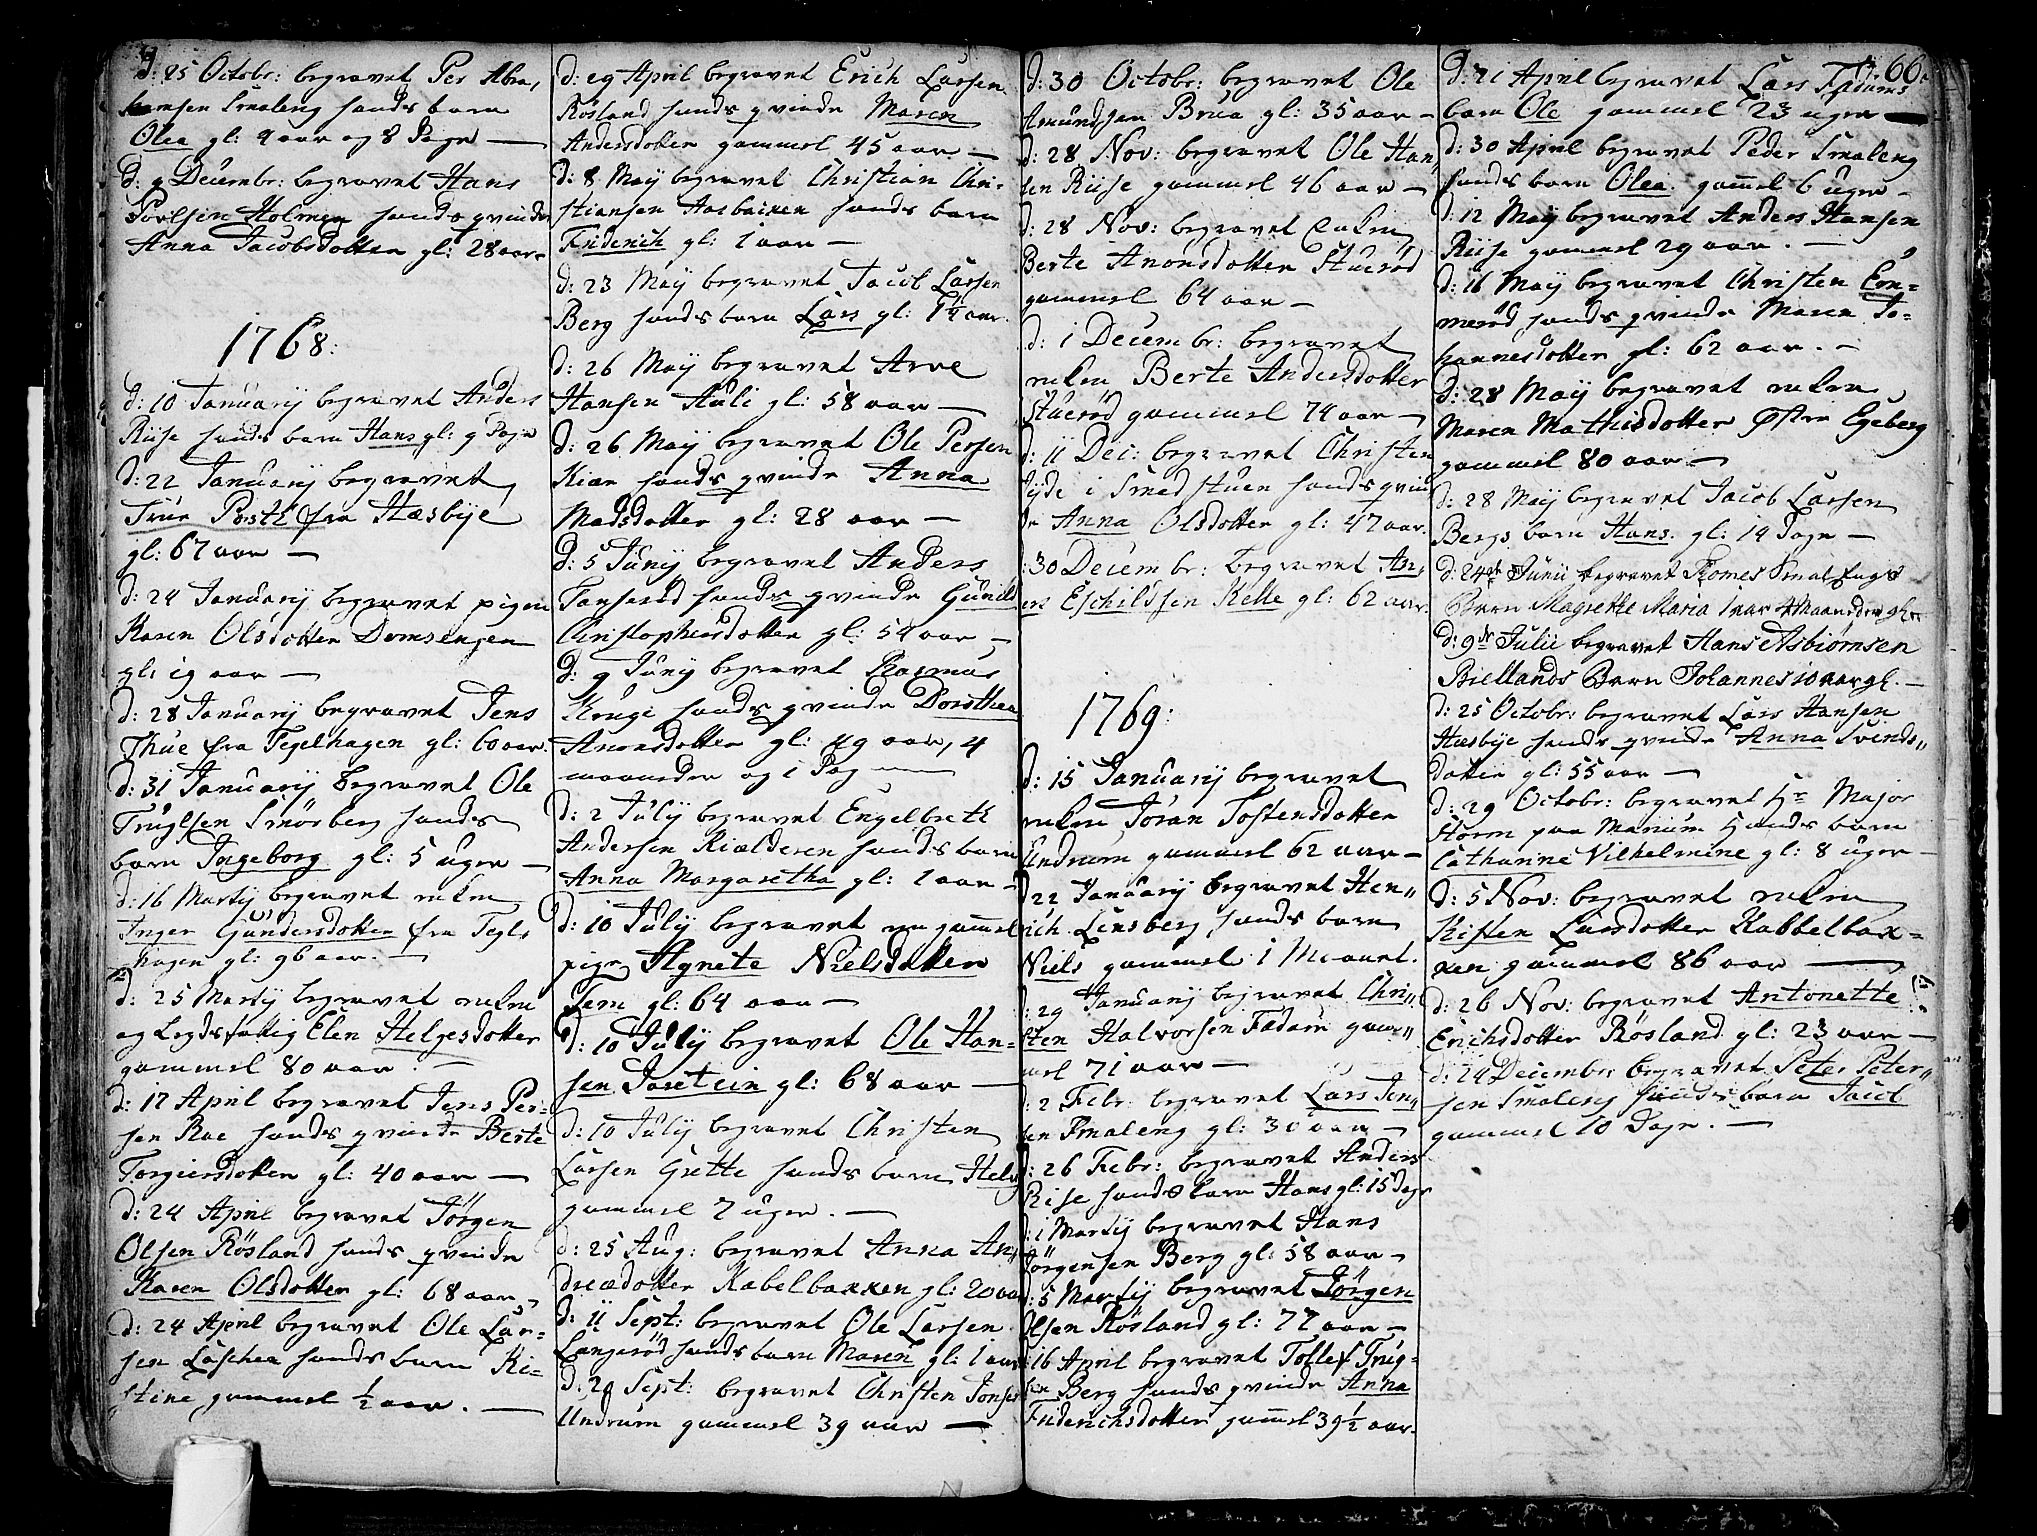 d: 25 Octobr: begravet Per Abra,
hamsen Smaleng hands barn
Olea gl: 4 aar og 8 Dage —
d: 9 Decembr: begravet Hans
Povlsen Holmen hands qvinde
Anna Jacobsdotter gl: 28 aar
1768:
d: 10 Januarij begravet Anders
Riise hands barn Hans gl: 9 Dage
d: 22 Januarij begravet
True fra Hæsbÿe
gl: 67 aar —
d: 24 Januarij begravet pigen
Karen Olsdotter Domsengen
gl: 19 aar —
d: 28 Januarij begravet Jens
Thue fra Tegelhagen gl: 60 aar.
d: 31 Januarij begravet Ole
Trugelsen Smørberg hands
barn Ingeborg gl: 5 uger —
d: 16 Martij begravet enken
Inger Gundersdotter fra Tegl,
hagen gl: 96 aar. —
d: 25 Martij begravet enken
og Legdsfattig Elen Helgesdotter
gammel 80 aar. —
d: 17 April begravet Jens Per-
sen Roe hands qvinde Berte
Torgiersdotter gl: 40 aar —
d: 24 April begravet Jörgen
Olsen Rösland hands qvinde
Karen Olsdotter gl: 68 aar,
d: 24 April begravet Ole Lar-
sen Laschen hands barn Ki-
stine, gammel ½ aar. —
d: 29 April begravet Erich Larsen
Rösland hands qvinde Maren
Andersdotter gammel 45 aar —
d: 8 Maij begravet Christian Chri-
stiansen Aasbacken hands barn
Friderich gl: 1 aar —
d: 23 Maij begravet Jacob Larsen
Berg hands barn Lars gl: 1½ aar.
d: 26 Maij begravet Arve
Hansen Auli gl: 58 aar —
d: 26 Maij begravet Ole Persen
Kiær hands qvinde Anna
Madsdotter gl: 28 aar —
d: 5 Junij begravet Anders
Tanserød hands qvinde Gunild
Christophersdotter gl: 54 aar —
d: 9 Junij begravet Rasmus
Kruge hands qvinde Dorothea
Anonsdotter gl: 49 aar, 4
maaneder og 1 Dag —
d: 2 Julij begravet Engelbreth
Andersen Kialderen hands barn
Anna Margaretha gl: 1 aar —
d: 10 Julij begravet en gammel
pige Agnete Nielsdotter
Fem gl: 64 aar —
d: 10 Julij begravet Ole Han-
sen Jarstein gl: 68 aar —
d: 10 Julij begravet Christen
Larsen Grette hands barn Helv
gammel 7 uger. —
d: 25 Aug: begravet Anna An,
dreædotter Kabelbakken gl: 20 aar
d: 11 Sept: begravet Ole Larsen
Langerød hands barn Maren gl: 1 aar
d: 28 Sept: begravet Christen Jonsen
Undrum gammel 39 aar —
d: 30 Octobr: begravet Ole
Amundsen Brua gl: 35 aar —
d: 28 Nov: begravet Ole Han
sen Riise gammel 46 aar —
d: 28 Nov: begravet enken
Berte Anonsdotter Stuerød
gammel 64 aar —
d: 1 Decembr: begravet
enken Berte Andersdotter
Stuerød gammel 74 aar —
d: 11 Dec: begravet Christen
Jyde i Smedstuen hands qvin
de Anna Olsdotter gl: 47 aar.
30 Decembr: begravet An,
ders Eschildsen Kelle gl: 62 aar.
1769:
d: 15 Januarij begravet
enken Jöran Tostensdotter
Undrum gammel 62 aar —
d 22 Januarij begravet Hen"
rich Linsberg hands barn
Niels gammel 1 Maanet.
d: 29 Januarij begravet Chri"
sten Halvorsen Fadum gam"
mel 71 aar —
d: 2 Febr: begravet Lars Jen"
sen Smaleng gl: 30 aar —
d: 26 Febr: begravet Anders
Riise hands barn Hans gl: 15 Dage
d: 1 Martij begravet Hans
Jörgensen Berg gl: 58 aar —
d: 5 Martij begravet Jörgen
Olsen Rösland gl: 77 aar —
16 April begravet Tollef Trug-
sen Berg hands qvinde Anna
Friderichsdotter gammel 39½ aar.
66.
d: 21 April begravet Lars Fadums
barn Ole gammel 23 uger —
d: 30 April begravet Peder Smaleng
hands barn Olea. gammel 6 uger —
d: 12 Maij begravet Anders Hansen
Riise gammel 29 aar. —
d: 16 Maij begravet Christen Rom-
merød hands qvinde Maren Jo-
hannesdotter gl: 62 aar. —
d: 28 Maij begravet enken
Maren Mathisdotter Østre Egeberg
gammel 80 aar —
d: 28 Maij begravet Jacob Larsen
Bergs barn Hans. gl: 14 Dage —
d: 24de Junii begravet Thomes Smalengs
Barn Magrethe Maria 1 aar 4 Maaneder gl:
d: 9de Julii begravet Hans Asbiørnsen
Biellands Barn Johannes 10 aar gl. —
d: 25 Octobr: begravet Lars Hansen
Hæsbÿe hands qvinde Anna Svends"
dotter gl: 55 aar —
d: 29 Octobr: begravet Hr Major
Storm paa Manum Hands barn
Catharine Vilhelmine gl: 8 uger —
d: 5 Nov: begravet enken
Kisten Larsdotter Kabbelbak-
ken gammel 86 aar —
d: 26 Nov: begravet Antonette
Erichsdotter Rösland gl: 23 aar —
d: 24 December begravet Peter Peter"
sen Smaleng hands barn Jacob
gammel 10 Dage. —